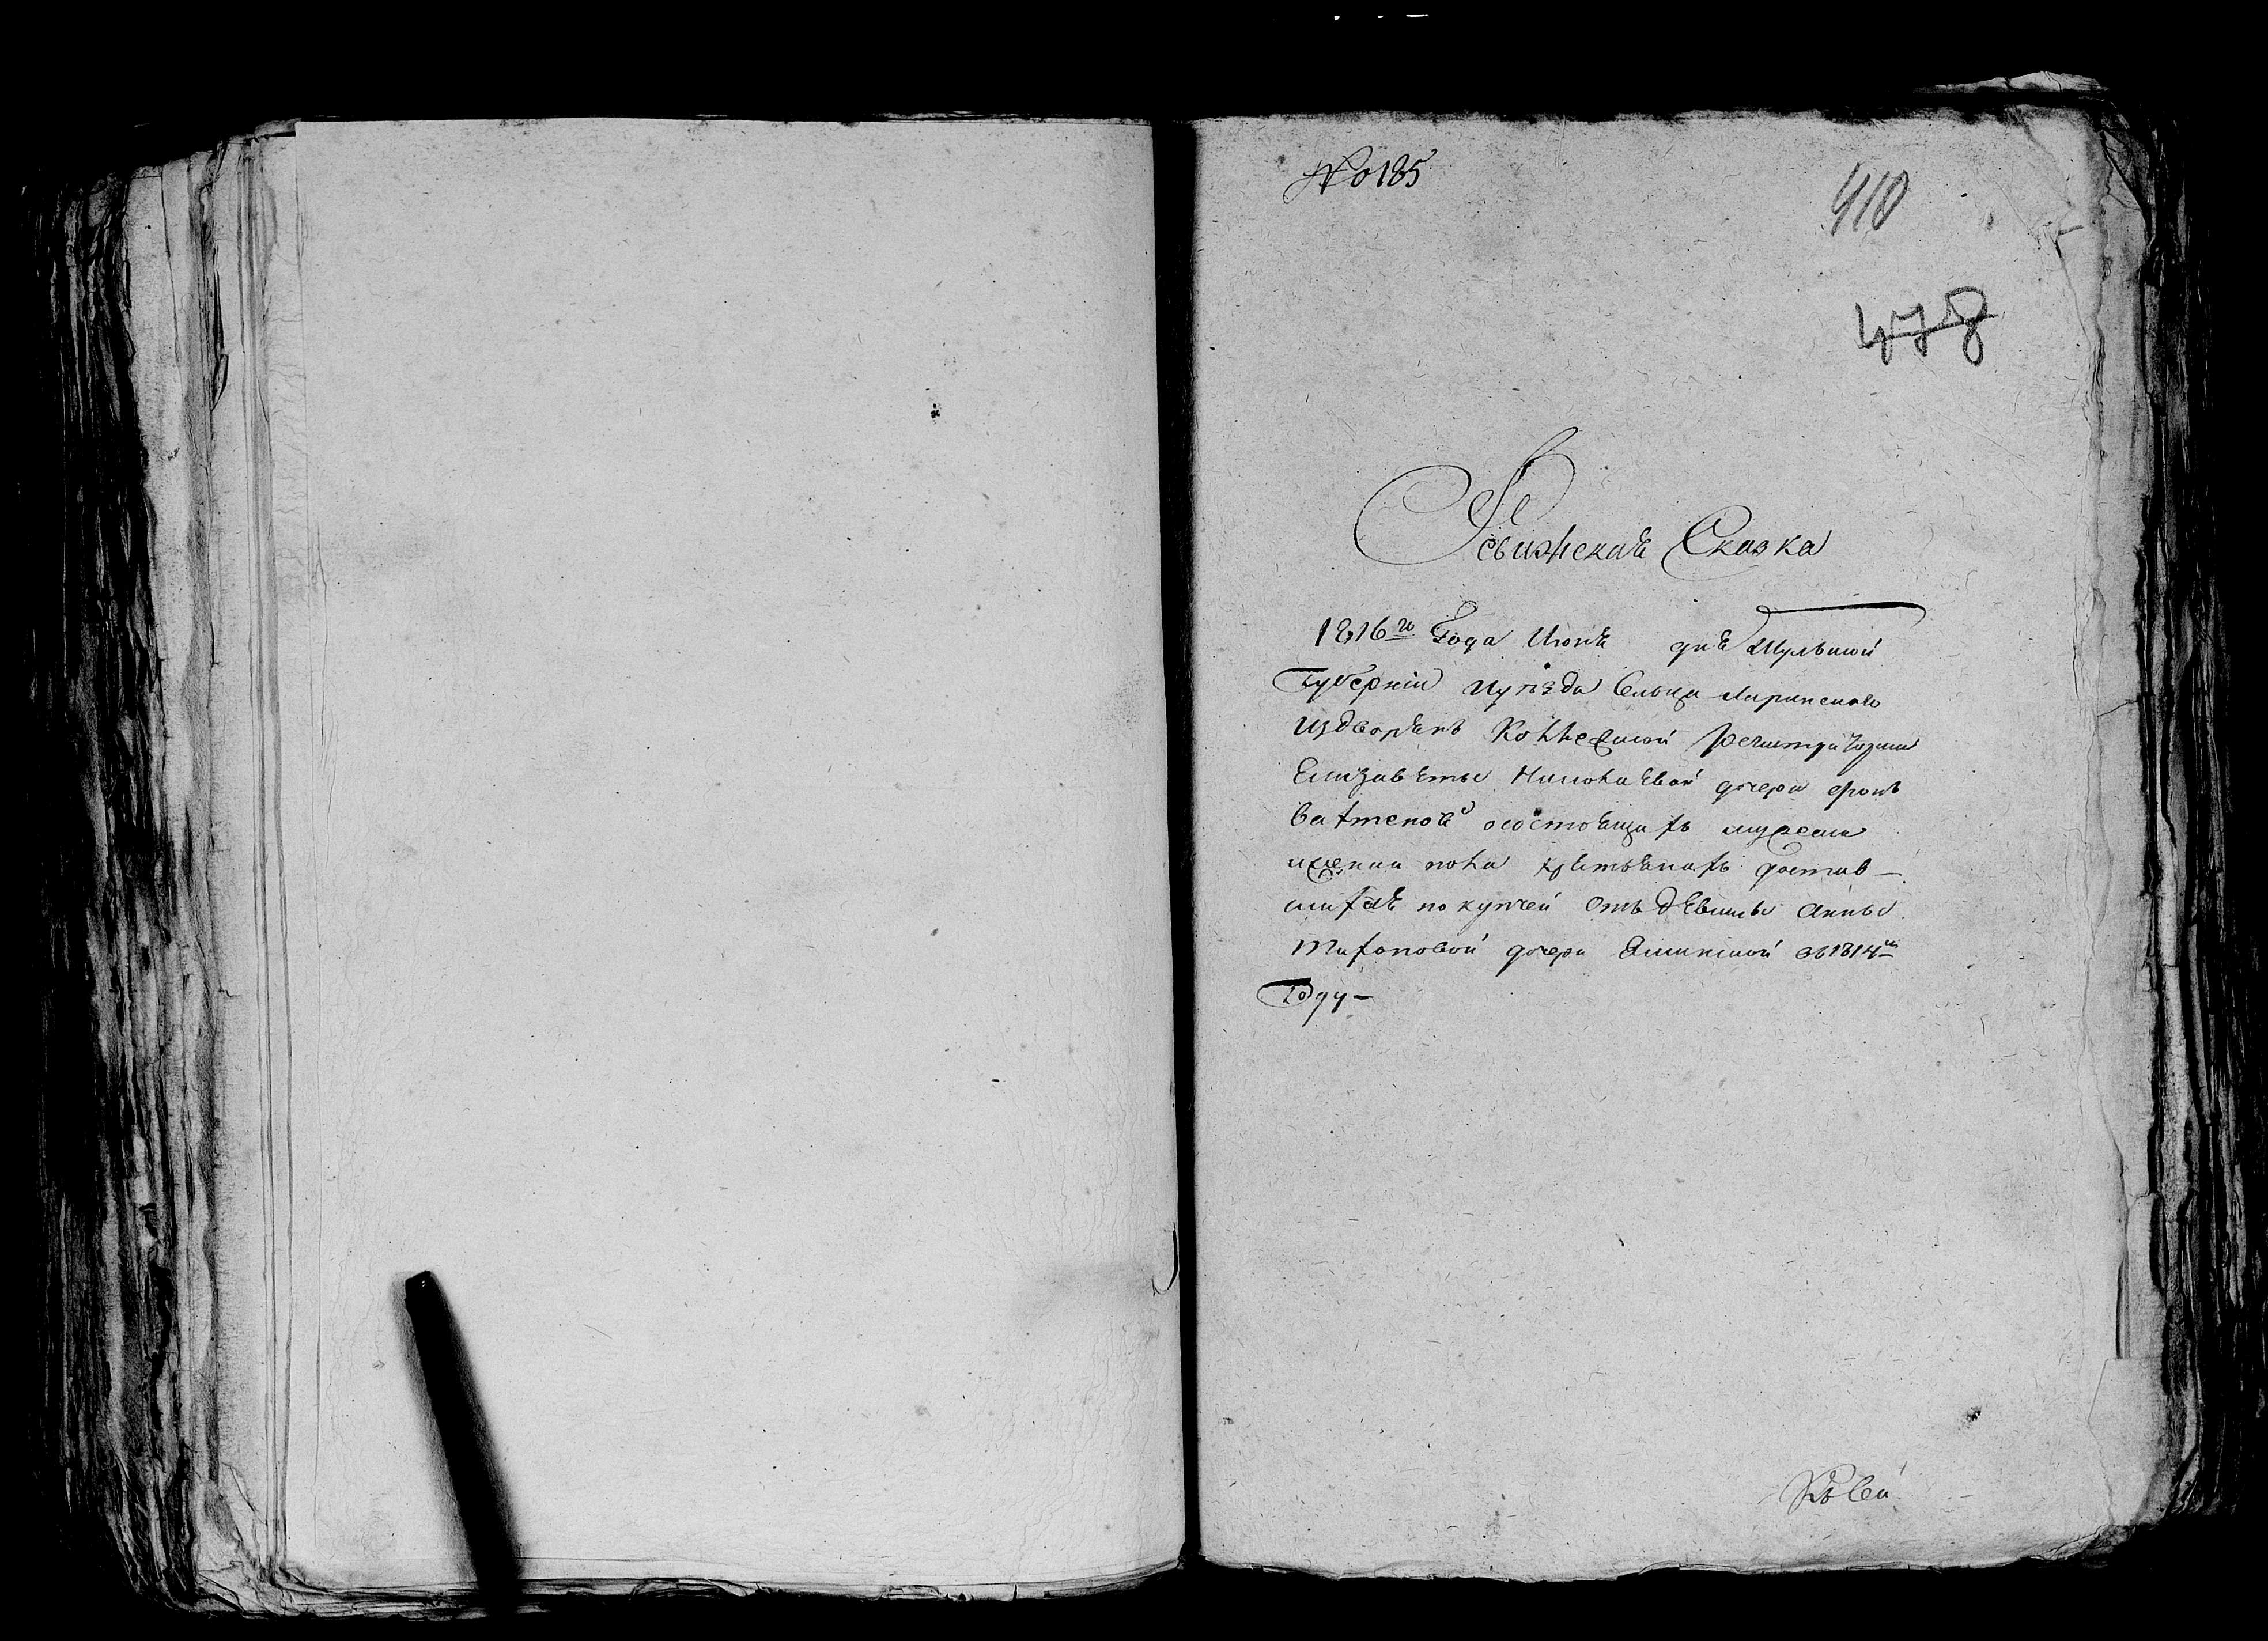 № 185
410
478
Ревижская Сказка
1816го Года Июня дня Тульской
Губернии и уѣзда Сельца Ларинского
из дворянъ Коллежской регистраторши
Елизаветы Николаевой дочери фонъ
о состоящихъ мужеска
и женска пола крестьянахъ достав-
шихся по купчей отъ девицы Анны
дочери въ 1814м
Году-
Къ сей